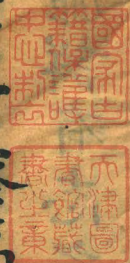 國家古
籍保護
中心
天津圖
書館藏
書之章